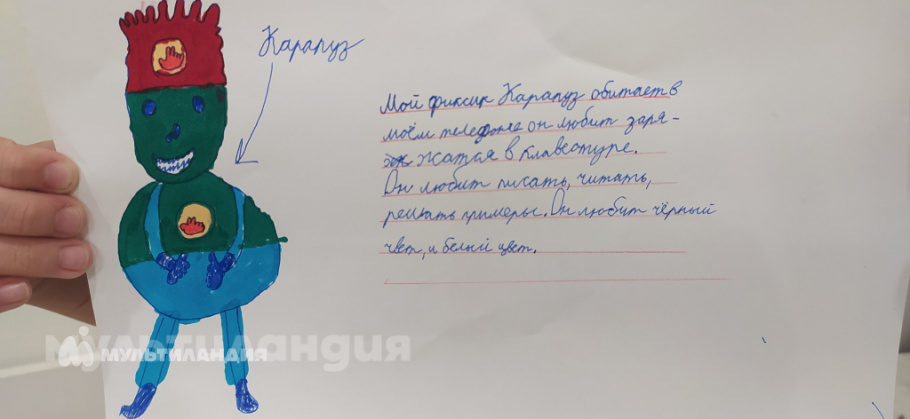 Карапуз
Мой фиксик Карапуз обитает в
моём телефоне он любит заря-
жатая в клавеатуре.
Он любит писать, читать,
решать примеры. Он любит чёрный
цвет, и белый цвет.
мультиландия
МУЛЬТИЛАНДИЯ